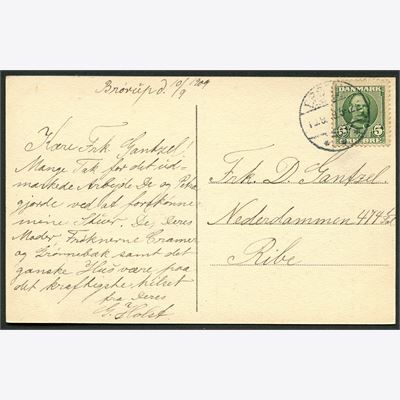 Brørup d. 10/9 1909
Kære Frk. Gantzel!
Mange Tak for det ud-
mærkede Arbejde De og Petra
gjorde ved at forskønne
mine De, Deres
Moder, Frøknerne Cramer
og Grønnebæk samt det
ganske Hus være paa
det kraftigste hilset
fra Deres
E. Holst.
DANMARK
5 5
ØRE ØRE
Frk. D. Gantzel.
Nederdammen
Ribe